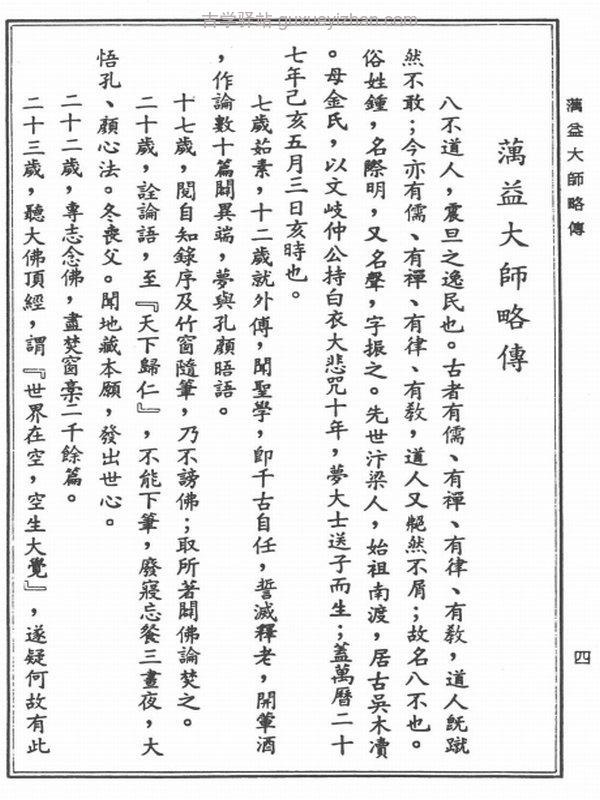 古学驿站 guxueyizhan.com
蕅益大師略傳
四
蕅益大師略傳
八不道人，震旦之逸民也。古者有儒、有禪、有律、有教，道人既蹴
然不敢；今亦有儒、有禪、有律、有教，道人又艴然不屑；故名八不也。
俗姓鍾，名際明，又名聲，字振之。先世汴梁人，始祖南渡，居古吳木瀆
。母金氏，以文岐仲公持白衣大悲咒十年，夢大士送子而生；蓋萬曆二十
七年己亥五月三日亥時也。
七歲茹素，十二歲就外傅，聞聖學，即千古自任，誓滅釋老，開葷酒
，作論數十篇闢異端，夢與孔顏晤語。
十七歲，閱自知錄序及竹窗隨筆，乃不謗佛；取所著闢佛論焚之。
二十歲，詮論語，至『天下歸仁』，不能下筆，廢寢忘餐三晝夜，大
悟孔、顏心法。冬喪父。聞地藏本願，發出世心。
二十二歲，專志念佛，盡焚窗稾二千餘篇。
二十三歲，聽大佛頂經，謂『世界在空，空生大覺』，遂疑何故有此